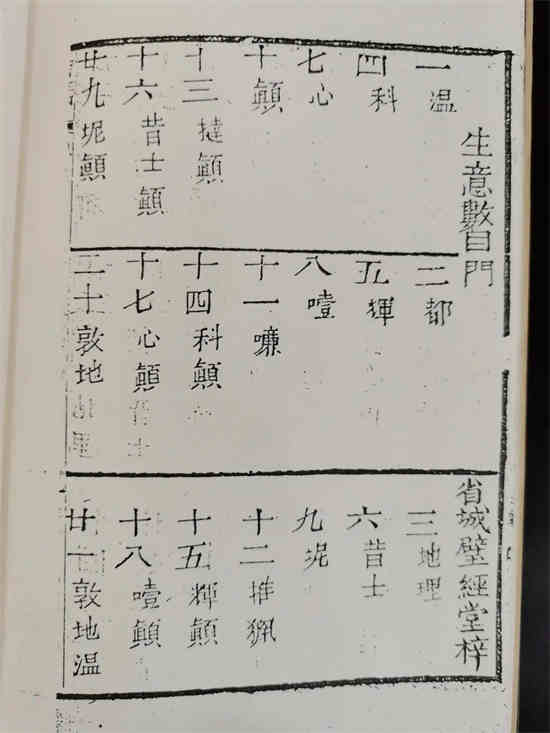 生意數目門
省城璧經堂梓
一 温
二 都
三 地理
四 科
五 揮
六 昔士
七 心
八 噎
九 坭
十 顛
十一 嗛
十二 推
十三 撻顛
十四 科顛
十五 輝顛
十六 昔士顛
十七 心顛
十八 噎顛
廿九 坭顛
二十 敦地
廿一 敦地温